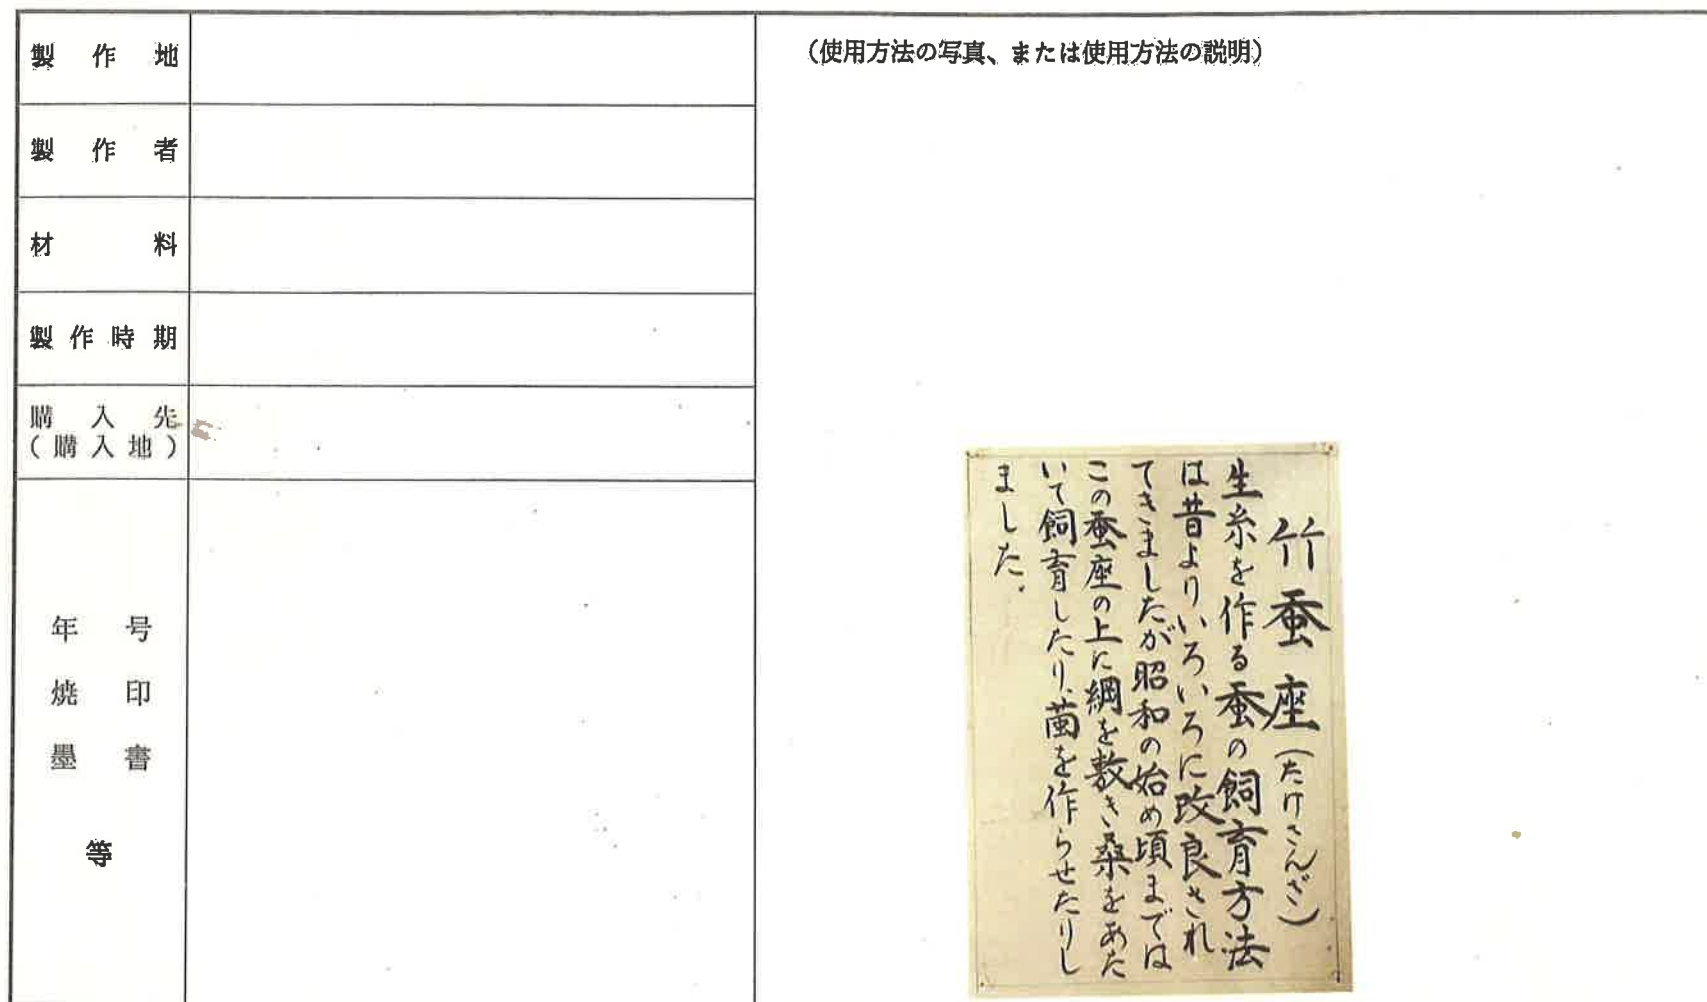 製作地
製作者
材料
製作時期
購入先
(購入地)
年号
焼印
墨書
等
(使用方法の写真、または使用方法の説明)
竹蚕座(たけさんざ)
生糸を作る蚕の飼育方法
は昔よりいろいろに改良され
てきましたが昭和の始め頃までは
この蚕座の上に綱を敷き、桑をあた
いて飼育したり、繭を作らせたりし
ました。